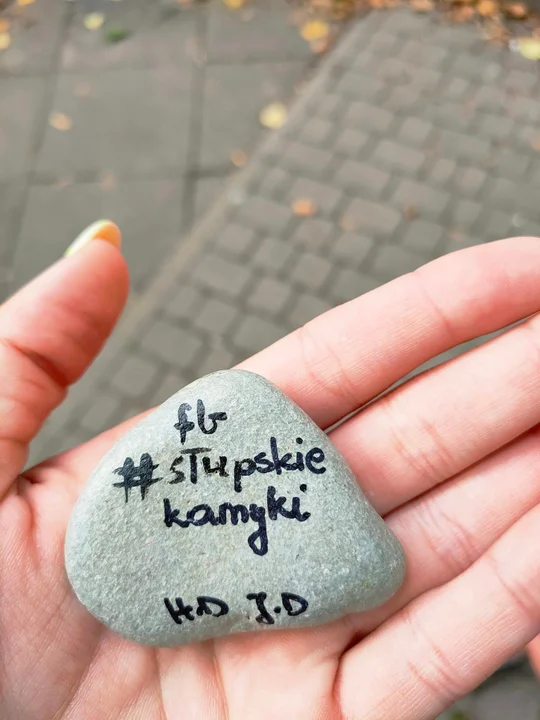 fb
#słupskie
kamyki
H.D J.D